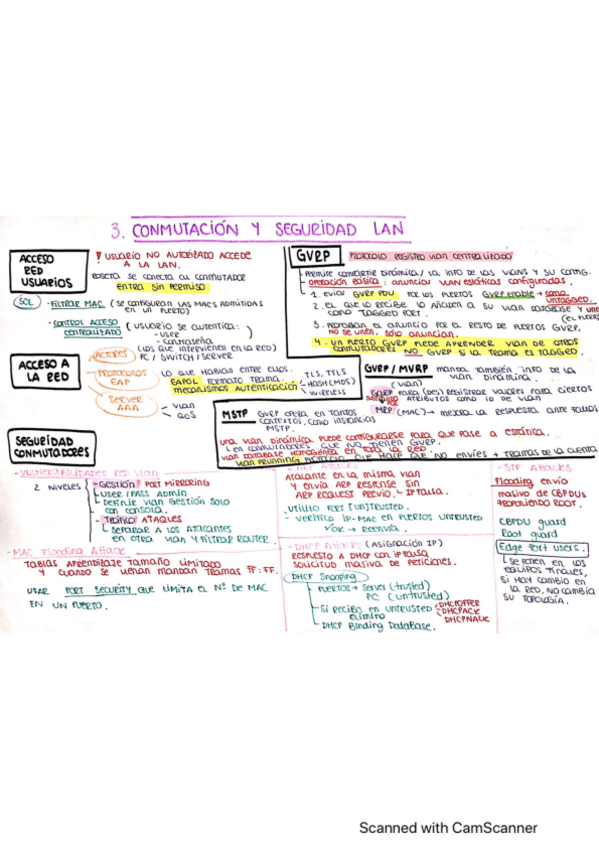 3. CONMUTACIÓN Y SEGURIDAD LAN
ACCESO
RED
USUARIOS
! USUARIO NO AUTORIZADO ACCEDE
A LA LAN.
ROSETA SE CONECTA AL CONMUTADOR
ENTRA SIN PERMISO
SOL
- FILTRAR MAC. (SE CONFIGURAN LAS MACS ADMITIDAS
EN UN PUERTO)
- CONTROL ACCESO
CENTRALIZADO
(USUARIO SE AUTENTICA:
- USER
- CONTRASEÑA)
ACCESO A
LA RED
ACTORES
(LOS QUE INTERVIENEN EN LA RED)
PC / SWITCH / SERVER
PROTOCOLOS
EAP
LO QUE HABLAN ENTRE ELLOS.
EAPOL FORMATO TRAMA.
MECANISMOS AUTENTICACIÓN
TLS, TTLS
HASH (MD5)
WIRELESS
SERVER
AAA
- VLAN
- QOS
GVRP
PROTOCOLO REGISTRO VLAN CENTRALIZADO
- PERMITE COMPARTIR DINÁMICA/ LA INFO DE LAS VLANS Y SU CONFIG.
- OPERACIÓN BÁSICA: ANUNCIAR VLAN ESTÁTICAS CONFIGURADAS.
1. ENVIAR GVRP PDU POR LOS PUERTOS GVRP ENABLE → SOMO
UNTAGGED.
2. EL QUE LO RECIBE LO AÑADEN A SU VLAN DATABASE Y UNE
COMO TAGGED PORT. (EL PUERTO
3. PROPAGAN EL ANUNCIO POR EL RESTO DE PUERTOS GVRP.
NO SE UNEN, SOLO ANUNCIAN.
4. UN PUERTO GVRP PUEDE APRENDER VLAN DE OTROS
CONMUTADORES NO GVRP SI LA TRAMA ES TAGGED.
GVRP / MVRP
MANDA TAMBIÉN INFO DE LA
VLAN DINÁMICA.
(VLAN)
GARP PARA (DES) REGISTRAR VALORES PARA CIERTOS
ATRIBUTOS COMO ID DE VLAN
MRP (MAC) → MEJORA LA RESPUESTA ANTE FALLOS
MSTP
GVRP OPERA EN TANTOS
CONTEXTOS, COMO INSTANCIAS
MSTP.
UNA VLAN DINÁMICA PUEDE CONFIGURARSE PARA QUE PASE A ESTÁTICA.
↳ EN CONMUTADORES QUE NO TIENEN GVRP.
VLAN DATABASE HOMOGÉNEA EN TODA LA RED.
VLAN PRUNNING PROTOCOLO QUE HACE QUE NO ENVÍES + TRAMAS DE LA CUENTA
SEGURIDAD
CONMUTADORES
- VULNERABILIDADES RED VLAN
2 NIVELES
- GESTIÓN
PORT MIRRORING
USER / PASS ADMIN
DEFINIR VLAN GESTIÓN SOLO
CON CONSOLA.
- TRÁFICO ATAQUES
↳ SEPARAR A LOS ATACANTES
EN OTRA VLAN Y FILTRAR ROUTER.
- MAC Flooding Attack
TABLAS APRENDIZAJE TAMAÑO LIMITADO
Y CUANDO SE LLENAN MANDAN TRAMAS FF:FF.
USAR PORT SECURITY QUE LIMITA EL Nº DE MAC
EN UN PUERTO.
ATACANTE EN LA MISMA VLAN
Y ENVÍA ARP RESPONSE SIN
ARP REQUEST PREVIO. ↳ IP FALSA.
- UTILIZO PORT (UN)TRUSTED.
- VERIFICO IP-MAC EN PUERTOS UNTRUSTED
- DHCP Attacks (ASIGNACIÓN IP)
RESPUESTO A DHCP CON IP FALSA
SOLICITUD MASIVA DE PETICIONES.
DHCP Snooping
PUERTOS → SERVER (trusted)
PC (untrusted)
SI RECIBO EN UNTRUSTED
ELIMINO
DHCPOFFER
DHCPACK
DHCPNACK
DHCP BINDING DATABASE.
- STP Attacks
Flooding ENVÍO
MASIVO DE CBPDUs
PROPONIENDO ROOT.
CBPDU guard
Root guard
Edge Port users.
↳ SE PONEN EN LOS
EQUIPOS FINALES,
SI HAY CAMBIO EN
LA RED, NO CAMBIA
SU TOPOLOGÍA.
Scanned with CamScanner